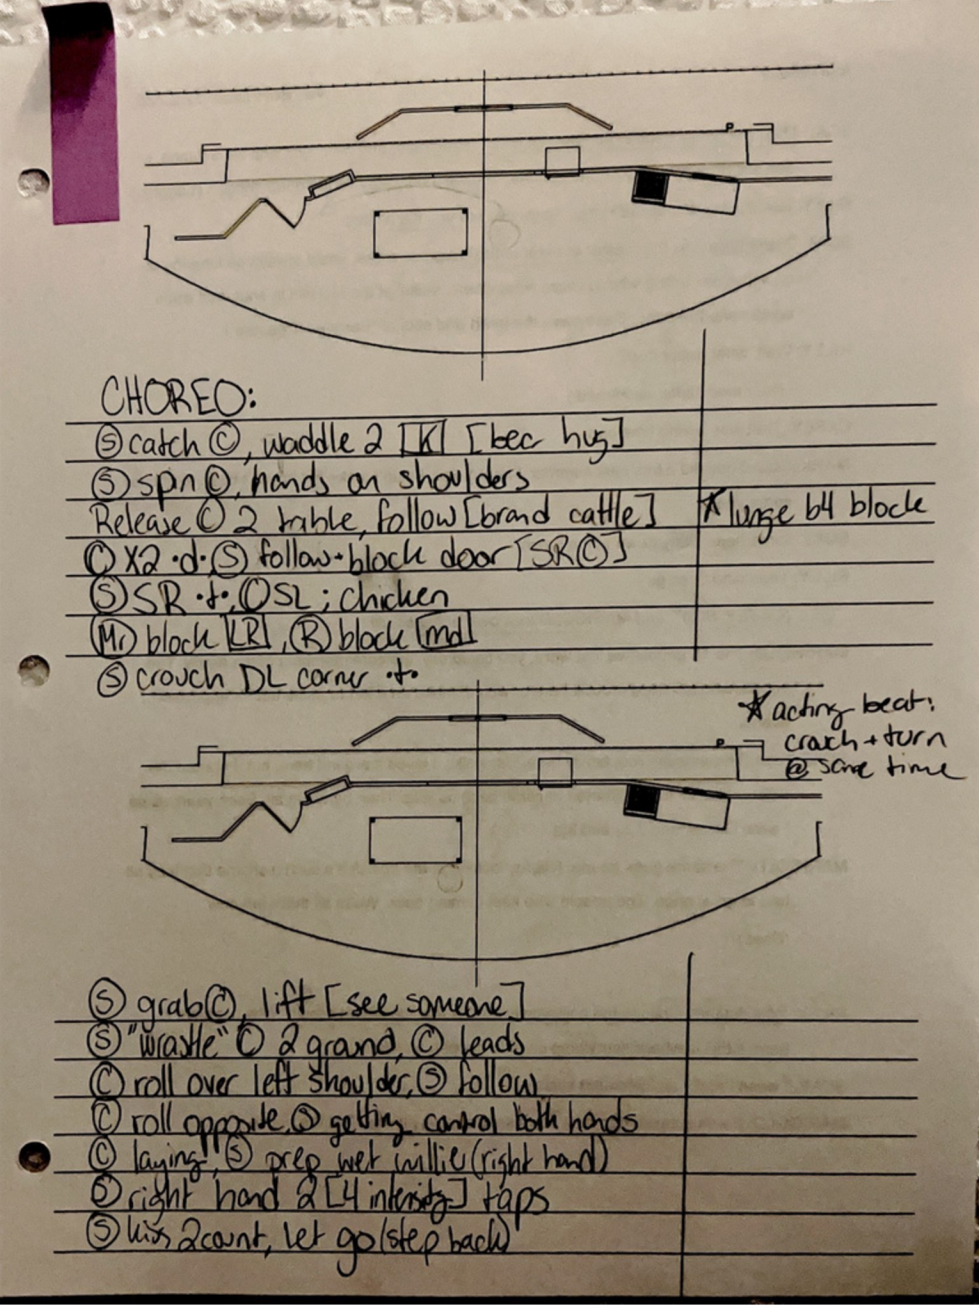 CHOREO:
Ⓢ catch Ⓒ, waddle 2 [K] [bec hug]
Ⓢ spin Ⓒ, hands on shoulders
Release Ⓒ 2 table, follow [brand cattle]
★ lunge b4 block
Ⓒ X2 •d• Ⓢ follow + block door [SRⒸ]
Ⓢ SR •t•, Ⓒ SL; chicken
(Mr) block [LR], Ⓡ block [md]
Ⓢ crouch DL corner •t•
★ acting beat:
crach + turn
@ same time
Ⓢ grab Ⓒ, lift [see someone]
Ⓢ "wrastle" Ⓒ 2 ground, Ⓒ leads
Ⓒ roll over left shoulder, Ⓢ follow
Ⓒ roll opposite, Ⓢ getting control both hands
Ⓒ laying, Ⓢ prep wet willie (right hand)
Ⓢ right hand 2 [4 intensity] taps
Ⓢ kiss 2count, let go (step back)